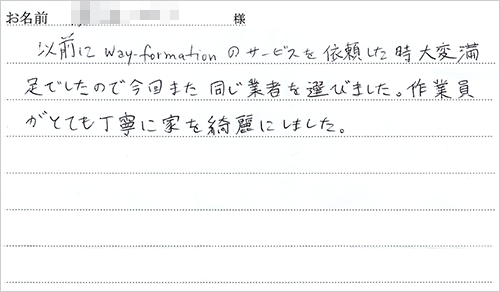 お名前 様
以前にway-formationのサービスを依頼した時大変満
足でしたので今回また同じ業者を選びました。作業員
がとても丁寧に家を綺麗にしました。